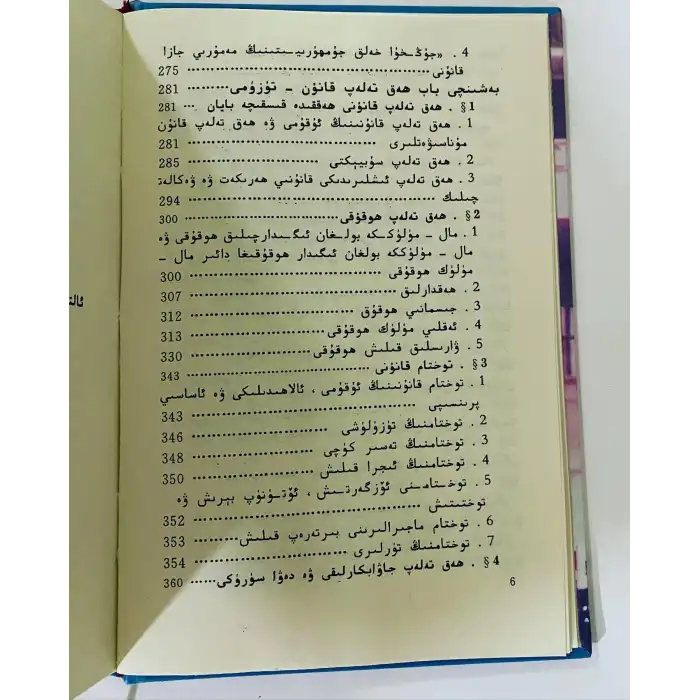 4 . «جۇڭخۇا خەلق جۇمھۇرىيىتىنىڭ مەمۇرىي جازا
قانۇنى ........................................ 275
بەشىنچى باب ھەق تەلەپ قانۇن - تۈزۈمى ......... 281
§1 . ھەق تەلەپ قانۇنى ھەققىدە قىسقىچە بايان ... 281
1 . ھەق تەلەپ قانۇنىنىڭ ئۇقۇمى ۋە ھەق تەلەپ قانۇن
مۇناسىۋەتلىرى .............................. 281
2 . ھەق تەلەپ سۇبيېكتى ......................... 285
3 . ھەق تەلەپ ئىشلىرىدىكى قانۇنىي ھەرىكەت ۋە ۋەكالەت
چىلىك ........................................ 294
§2 . ھەق تەلەپ ھوقۇقى ......................... 300
1 . مال - مۈلۈككە بولغان ئىگىدارچىلىق ھوقۇقى ۋە
مال - مۈلۈككە بولغان ئىگىدار ھوقۇقىغا دائىر مال -
مۈلۈك ھوقۇقى .............................. 300
2 . ھەقدارلىق .............................. 307
3 . جىسمانىي ھوقۇق ......................... 312
4 . ئەقلىي مۈلۈك ھوقۇقى .................... 313
5 . ۋارىسلىق قىلىش ھوقۇقى .................. 330
§3 . توختام قانۇنى ......................... 343
1 . توختام قانۇنىنىڭ ئۇقۇمى ، ئالاھىدىلىكى ۋە ئاساسىي
پرىنسىپى ................................... 343
2 . توختامنىڭ تۈزۈلۈشى .................... 346
3 . توختامنىڭ تەسىر كۈچى .................. 348
4 . توختامنىڭ ئىجرا قىلىش .................. 350
5 . توختامنى ئۆزگەرتىش ، ئۆتۈنۈپ بېرىش ۋە
توختىتىش ................................... 352
6 . توختام ماجىرالىرىنى بىرتەرەپ قىلىش ......... 353
7 . توختامنىڭ تۈرلىرى ......................... 354
§4 . ھەق تەلەپ جاۋابكارلىقى ۋە دەۋا سۈرۈكى ...... 360
6